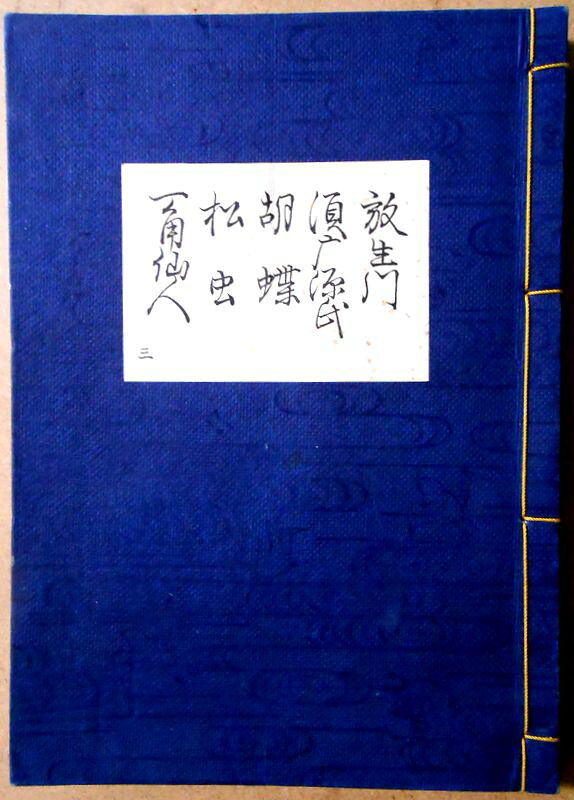 放生川
須广源氏
胡蝶
松虫
一角仙人
三